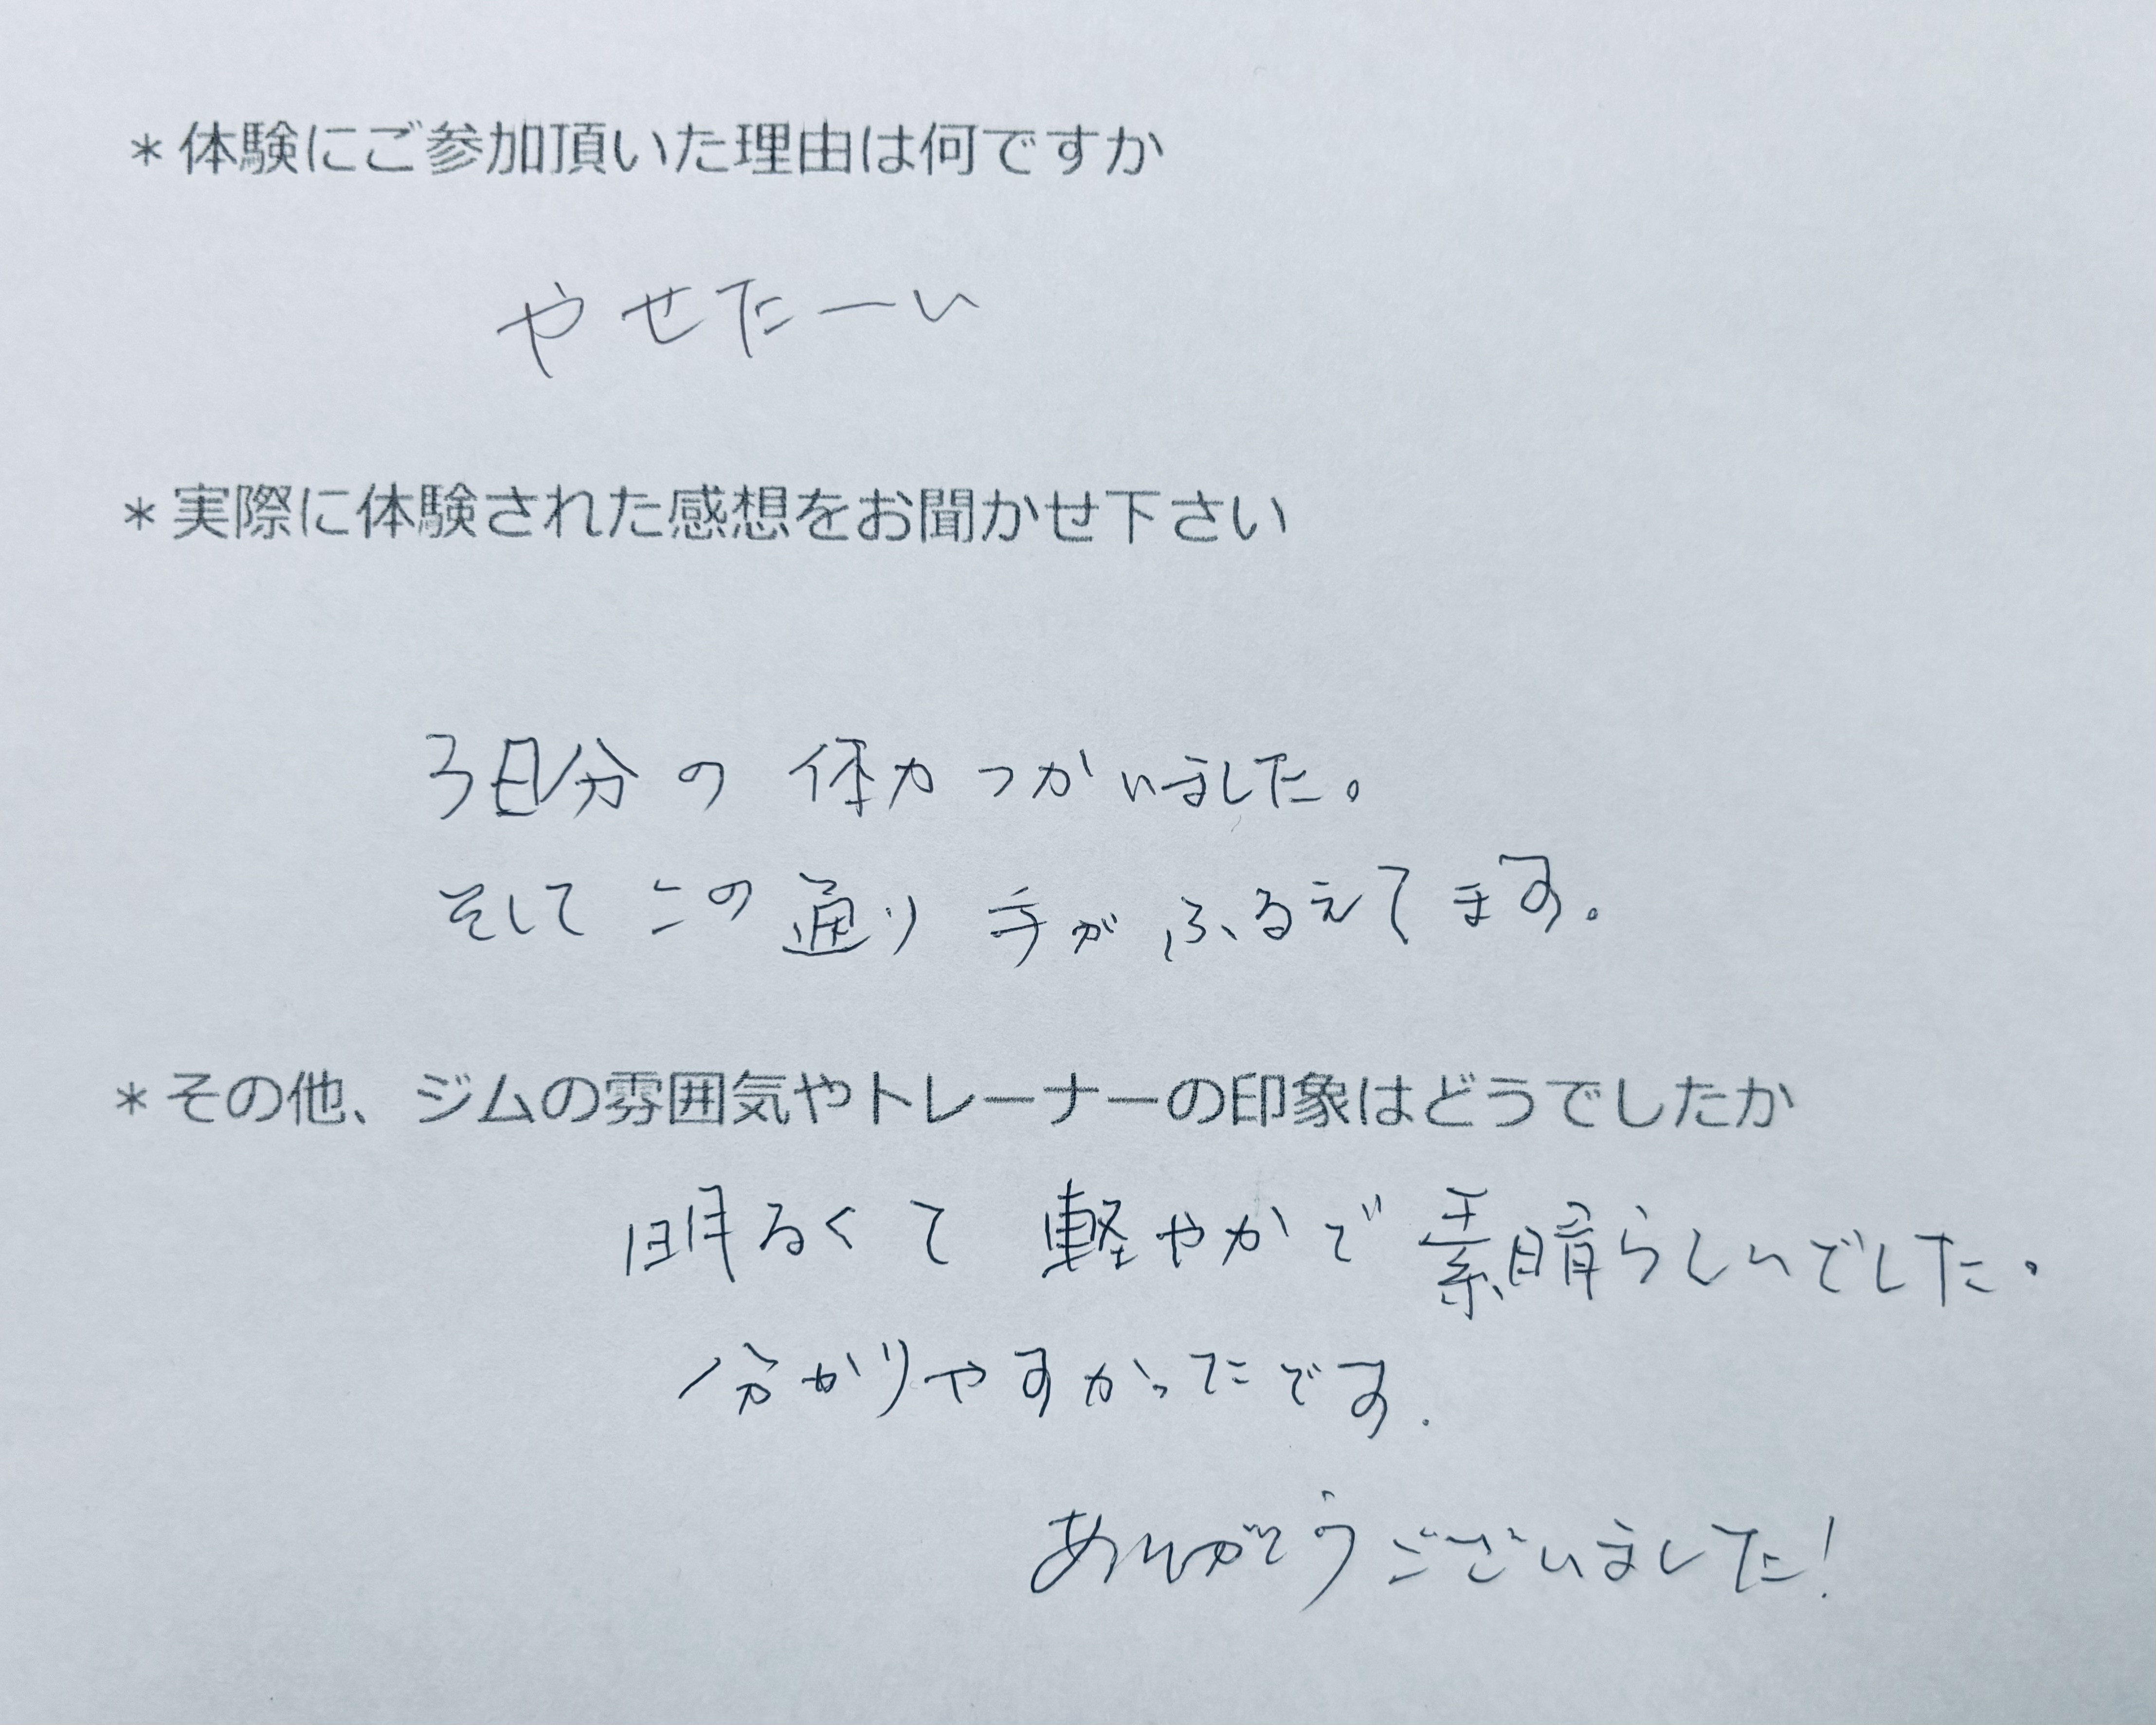 ＊体験にご参加頂いた理由は何ですか
やせたーい
＊実際に体験された感想をお聞かせ下さい
3日分の体力つかいました。
そしてこの通り手がふるえてます。
＊その他、ジムの雰囲気やトレーナーの印象はどうでしたか
明るくて軽やかで素晴らしいでした。
分かりやすかったです.
ありがとうございました!